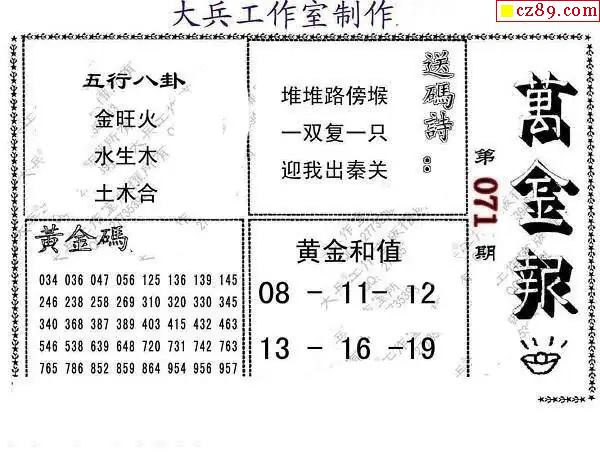 大兵工作室制作
cz89.com
五行八卦
金旺火
水生木
土木合
送碼詩：
堆堆路傍堠
一双复一只
迎我出秦关
萬金报
第071期
黃金碼
034 036 047 056 125 136 139 145
246 238 258 269 310 320 330 345
340 368 387 389 403 415 432 463
546 538 639 648 720 731 742 763
765 786 852 859 864 954 956 957
黄金和值
08 - 11- 12
13 - 16 -19